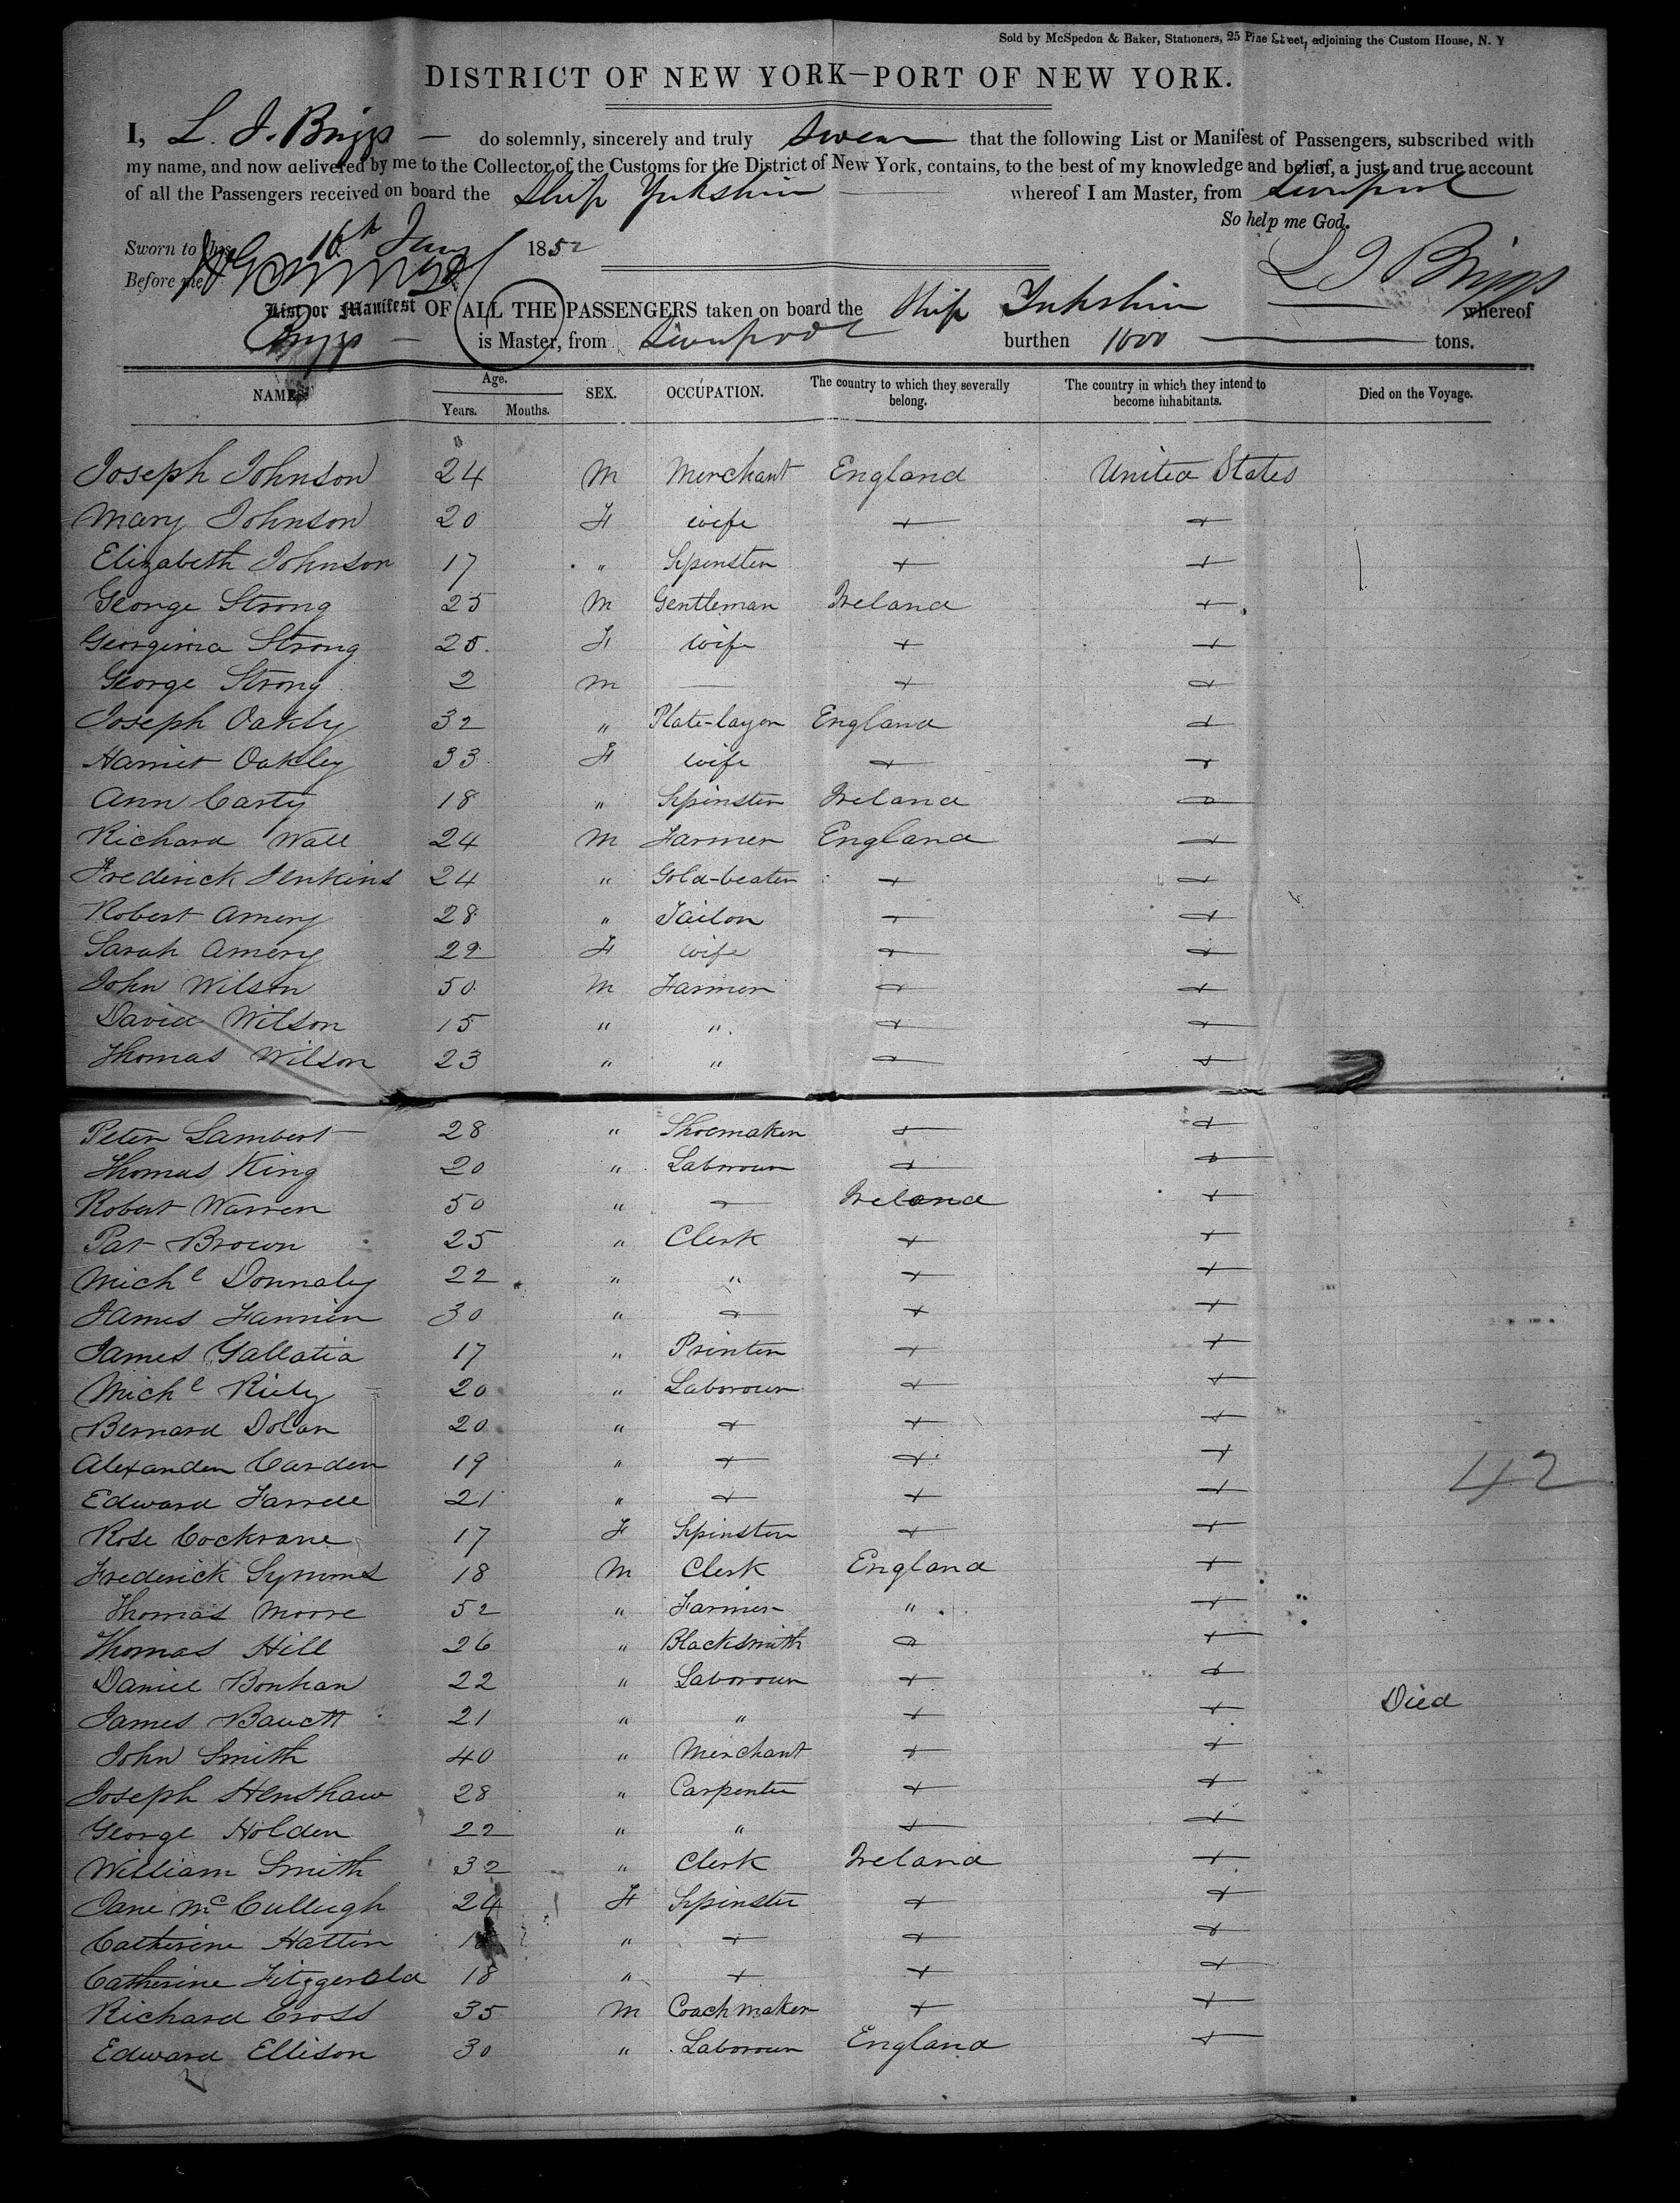 Sold by McSpedon & Baker, Stationers, 25 Pine Street, adjoining the Custom House, N. Y
DISTRICT OF NEW YORK—PORT OF NEW YORK.
I, L. J. Briggs — do solemnly, sincerely and truly swear that the following List or Manifest of Passengers, subscribed with
my name, and now delivered by me to the Collector of the Customs for the District of New York, contains, to the best of my knowledge and belief, a just and true account
of all the Passengers received on board the Ship Yorkshire whereof I am Master, from Liverpool
So help me God.
Sworn to this 16th Jany 1852
L J Briggs
Before me
List or Manifest OF ALL THE PASSENGERS taken on board the Ship Yorkshire whereof
Briggs — is Master, from Liverpool burthen 1000 tons.
NAMES. Age. Years. Months. SEX. OCCUPATION. The country to which they severally belong. The country in which they intend to become inhabitants. Died on the Voyage.
Joseph Johnson 24 M Merchant England United States
Mary Johnson 20 F wife + +
Elizabeth Johnson 17 " Spinster + +
George Strong 25 M Gentleman Ireland +
Georgina Strong 25 F wife + +
George Strong 2 M — + +
Joseph Oakly 32 " Plate-layer England +
Harriet Oakley 33 F wife + +
Ann Carty 18 " Spinster Ireland +
Richard Wall 24 M Farmer England +
Frederick Jenkins 24 " Gold-beater + +
Robert Amery 28 " Tailor + +
Sarah Amery 22 F wife + +
John Wilson 50 M Farmer + +
David Wilson 15 " " + +
Thomas Wilson 23 " " + +
Peter Lambert 28 " Shoemaker + +
Thomas King 20 " Labourour + +
Robert Warren 50 " + Ireland +
Pat Brown 25 " Clerk + +
Michl Donnaly 22 " " + +
James Fannin 30 " + + +
James Gallatia 17 " Printer + +
Michl Riely 20 " Labourour + +
Bernard Dolan 20 " + + +
Alexander Carden 19 " + + +
42
Edward Farrell 21 " + + +
Rose Cockrane 17 F Spinster + +
Frederick Symms 18 M Clerk England +
Thomas Moore 52 " Farmer " +
Thomas Hill 26 " Blacksmith + +
Daniel Bonhan 22 " Labourour + +
James 21 " " + + Died
John Smith 40 " Merchant + +
Joseph Henshaw 28 " Carpenter + +
George Holden 22 " " + +
William Smith 32 " Clerk Ireland +
Jane McCullugh 24 F Spinster + +
Catherine Hattin " + + +
Catherine Fitzgerald 18 " + + +
Richard Cross 35 M Coachmaker + +
Edward Ellison 30 " Labourour England +